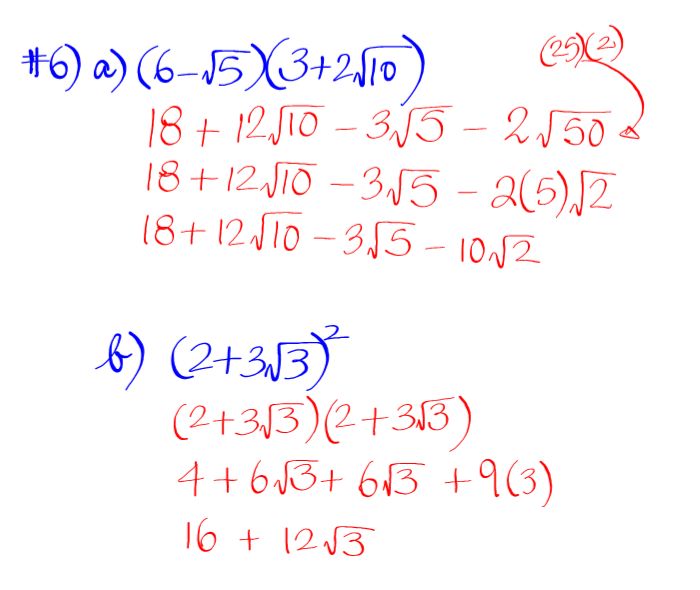 #6) a) (6-√5)(3+2√10)
(25)(2)
18 + 12√10 - 3√5 - 2√50
18 + 12√10 - 3√5 - 2(5)√2
18 + 12√10 - 3√5 - 10√2
b) (2+3√3)²
(2+3√3)(2+3√3)
4 + 6√3 + 6√3 + 9(3)
16 + 12√3